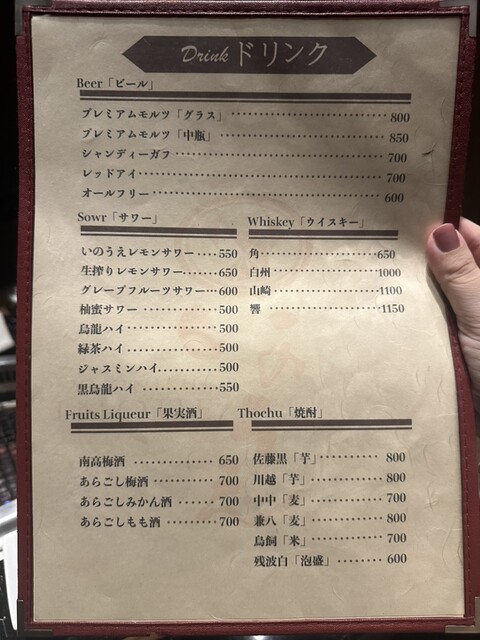 Drink ドリンク
Beer「ビール」
プレミアムモルツ「グラス」 ‥‥‥‥‥‥‥‥‥‥ 800
プレミアムモルツ「中瓶」 ‥‥‥‥‥‥‥‥‥‥ 850
シャンディーガフ ‥‥‥‥‥‥‥‥‥‥ 700
レッドアイ ‥‥‥‥‥‥‥‥‥‥ 700
オールフリー ‥‥‥‥‥‥‥‥‥‥ 600
Sowr「サワー」
いのうえレモンサワー ‥‥ 550
生搾りレモンサワー ‥‥ 650
グレープフルーツサワー ‥‥ 600
柚蜜サワー ‥‥‥‥ 500
烏龍ハイ ‥‥‥‥ 500
緑茶ハイ ‥‥‥‥ 500
ジャスミンハイ ‥‥‥‥ 500
黒烏龍ハイ ‥‥‥‥ 550
Whiskey「ウイスキー」
角 ‥‥‥‥‥‥ 650
白州 ‥‥‥‥‥‥ 1000
山崎 ‥‥‥‥‥‥ 1100
響 ‥‥‥‥‥‥ 1150
Fruits Liqueur「果実酒」
南高梅酒 ‥‥‥‥‥ 650
あらごし梅酒 ‥‥‥‥ 700
あらごしみかん酒 ‥‥‥ 700
あらごしもも酒 ‥‥‥‥ 700
Thochu「焼酎」
佐藤黒「芋」 ‥‥‥‥‥ 800
川越「芋」 ‥‥‥‥‥ 800
中中「麦」 ‥‥‥‥‥ 700
兼八「麦」 ‥‥‥‥‥ 800
鳥飼「米」 ‥‥‥‥‥ 700
残波白「泡盛」 ‥‥‥‥ 600